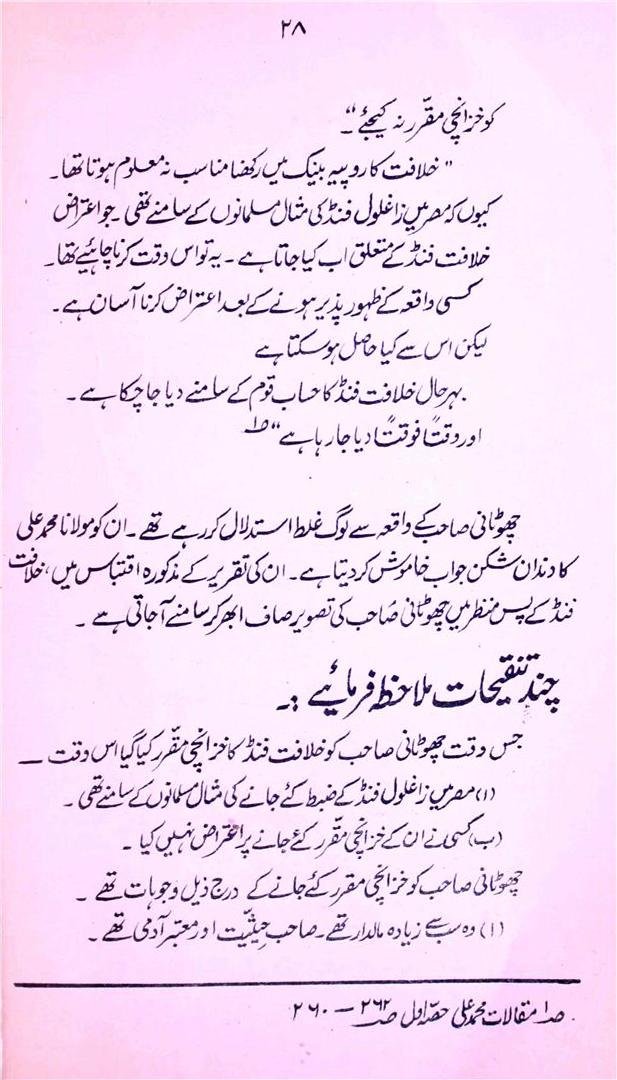 ۲۸
کو خزانچی مقرّر نہ کیجئے"۔
" خلافت کا روپیہ بینک میں رکھنا مناسب نہ معلوم ہوتا تھا۔
کیوں کہ مصر میں زاغلول فنڈ کی مثال مسلمانوں کے سامنے تھی۔ جو اعتراض
خلافت فنڈ کے متعلق اب کیا جاتا ہے۔ یہ تو اس وقت کرنا چاہئیے تھا۔
کسی واقعہ کے ظہور پذیر ہونے کے بعد اعتراض کرنا آسان ہے۔
لیکن اس سے کیا حاصل ہو سکتا ہے
بہر حال خلافت فنڈ کا حساب قوم کے سامنے دیا جا چکا ہے۔
اور وقتاً فوقتاً دیا جا رہا ہے" ص۱
چھوٹانی صاحب کے واقعہ سے لوگ غلط استدلال کر رہے تھے۔ ان کو مولانا محمد علی
کا دندان شکن جواب خاموش کر دیتا ہے۔ ان کی تقریر کے مذکورہ اقتباس میں، خلافت
فنڈ کے پس منظر میں چھوٹانی صاحب کی تصویر صاف ابھر کر سامنے آجاتی ہے۔
چند تنقیحات ملاحظہ فرمائیے :۔
جس وقت چھوٹانی صاحب کو خلافت فنڈ کا خزانچی مقرّر کیا گیا اس وقت —
(۱) مصر میں زاغلول فنڈ کے ضبط کئے جانے کی مثال مسلمانوں کے سامنے تھی۔
(ب) کسی نے ان کے خزانچی مقرّر کئے جانے پر اعتراض نہیں کیا۔
چھوٹانی صاحب کو خزانچی مقرر کئے جانے کے درج ذیل وجوہات تھے۔
(۱) وہ سب سے زیادہ مالدار تھے۔ صاحب حیثیّت اور معتبر آدمی تھے۔
ص۱ مقالات محمد علی حصّہ اول ص ۲۶۲ — ۲۶۰